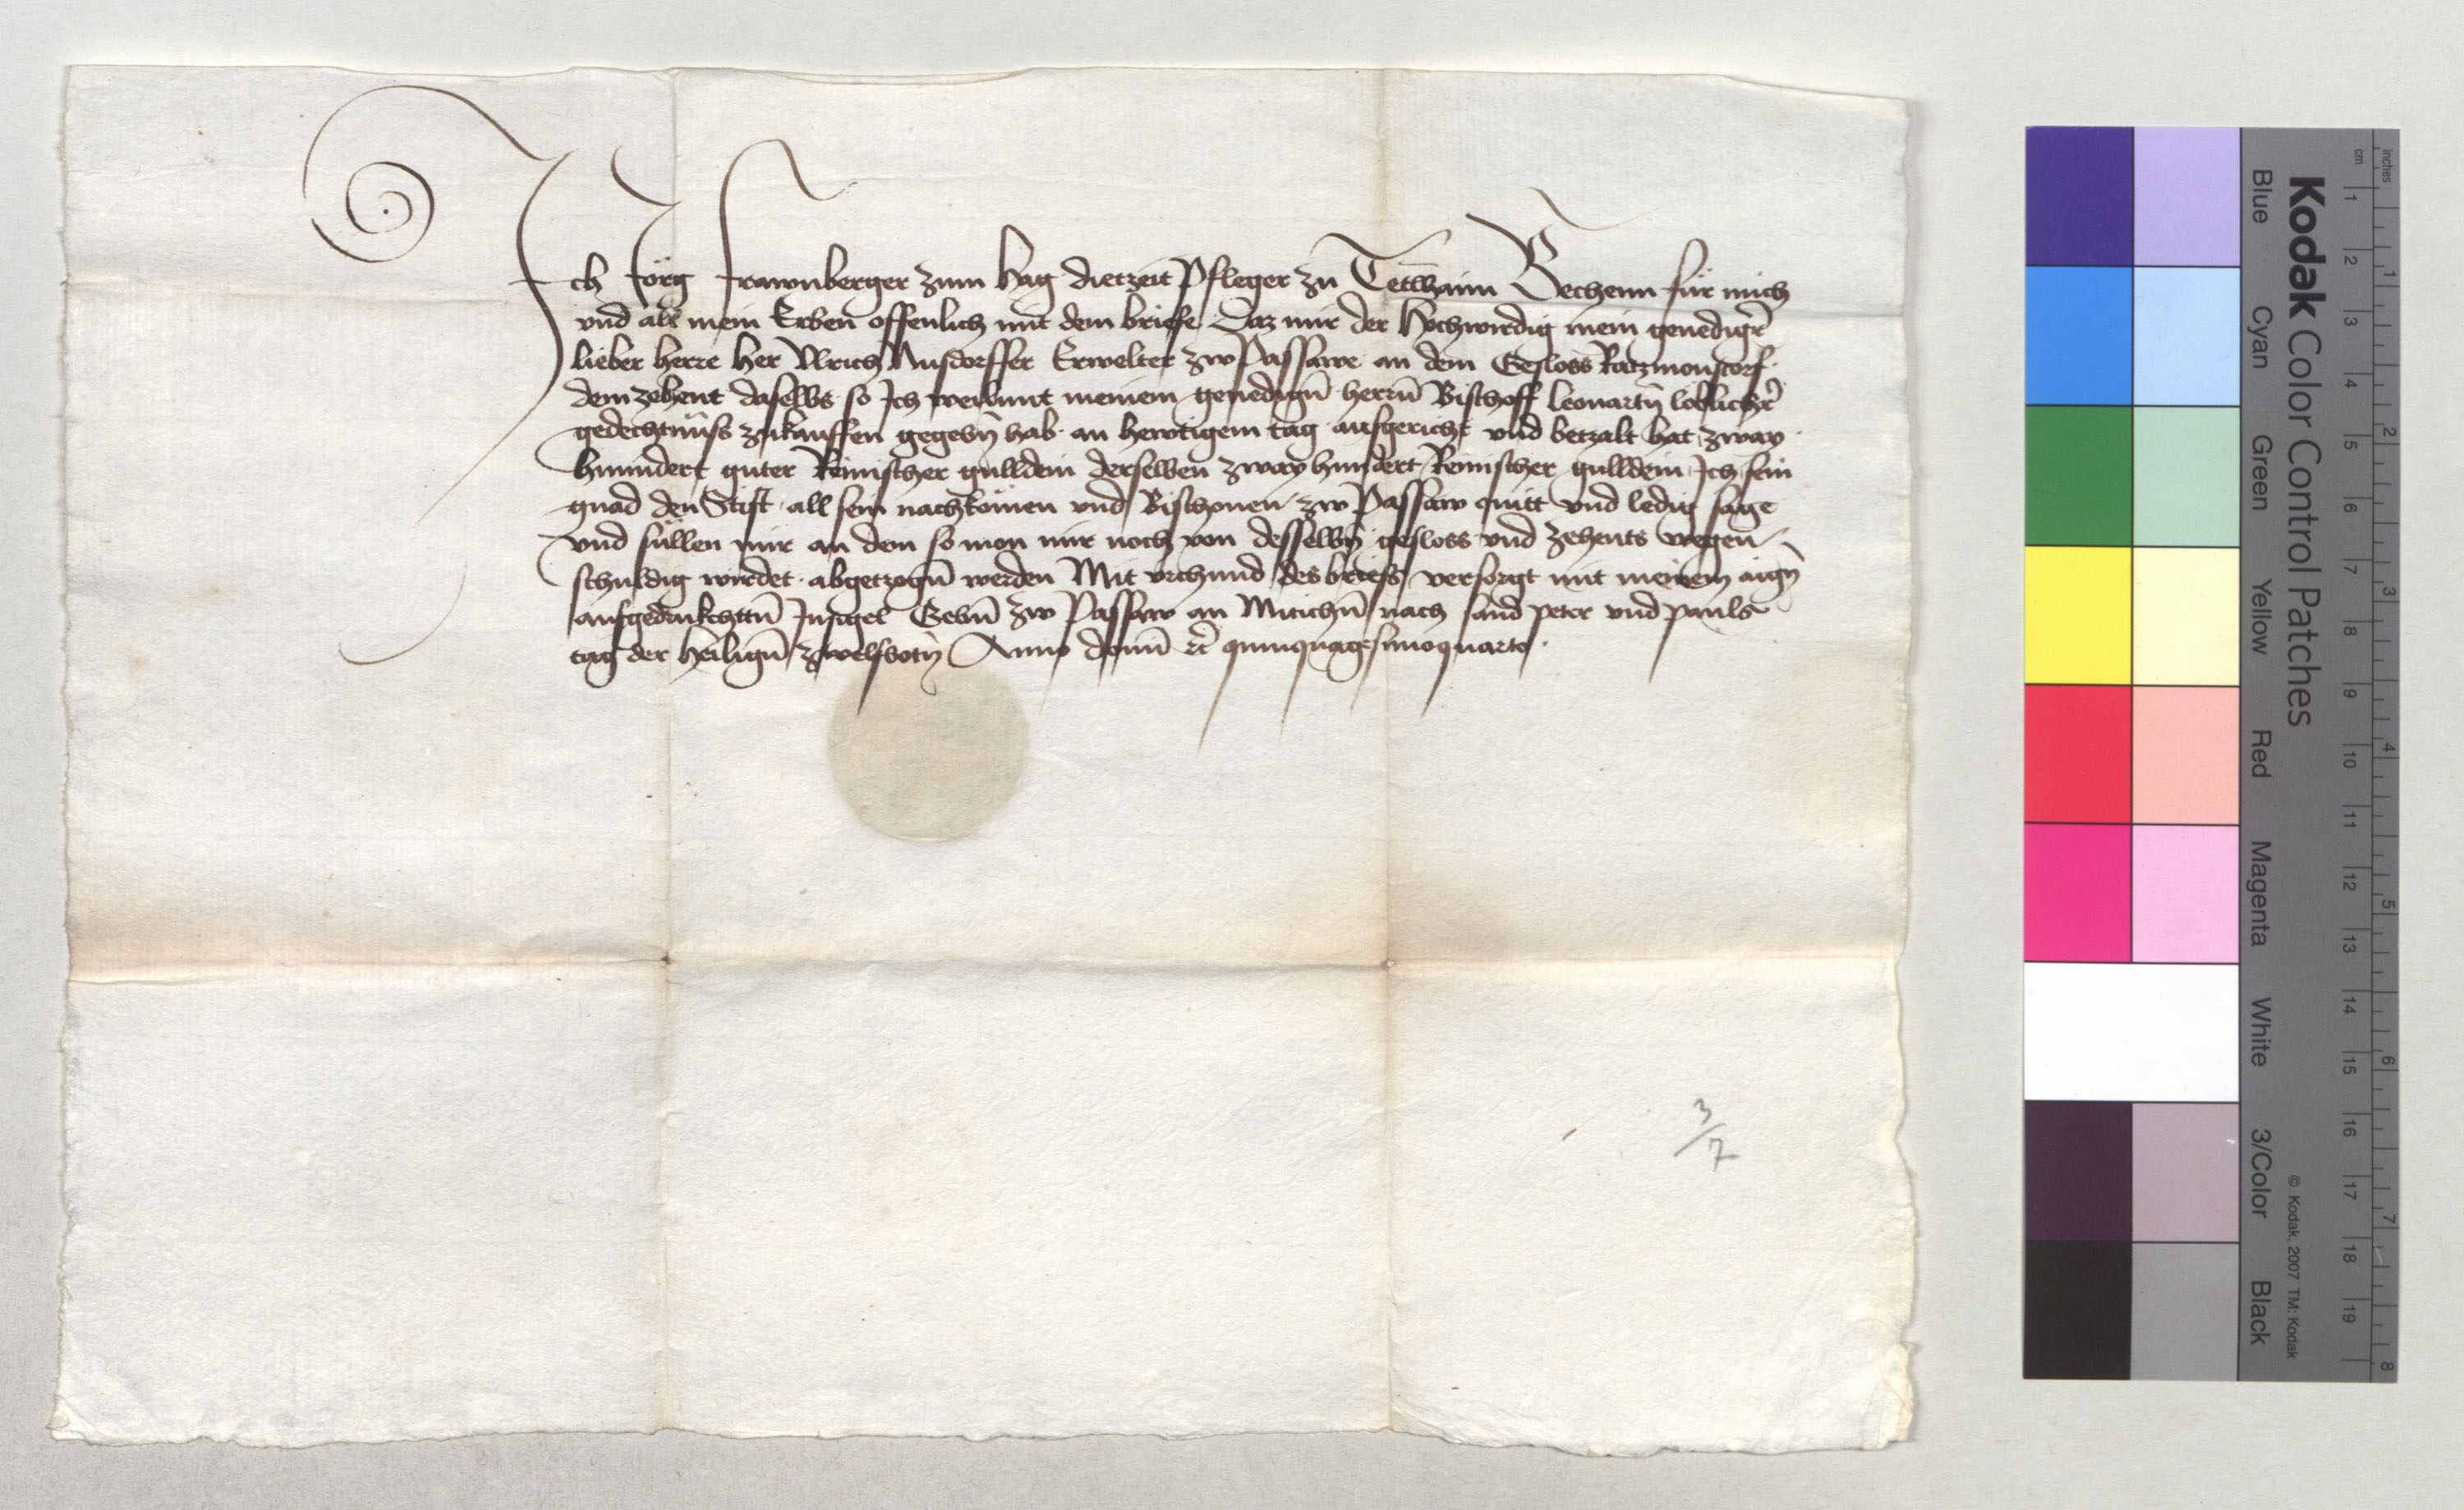 Ich Jörg Frawnberger zum Hag dietzeit Pfleger zu Tettwainn Bechenn für mich
vnd all mein Erben offenlich mit dem briefe Daz mir der Hochwirdig mein genediger̄
lieber herre her Vlrich Nusdorffer Erwelter zw Passawe an dem Gesloss Ratzmonstorf
dem zehent daselbs so Ich weilunnt meinem genedigñ herrñ Bischoff Leonartñ löblicher̄
gedechtnüss zukauffen gegebñ hab an hewtigem tag ausgericht vnd betzalt hat zway
hunndert guter Reinischer gulldein derselben zway hundert Reinischer gulldein Ich sein
gnad den Stift all sein nachkömen vnd Bischouen zw Passaw quitt vnd ledig sage
vnd süllen mir an dem so man mir noch von desselbñ gesloss vnd zehents wegen
schuldig wirdet abgetzogñ werden Mit vrchund des briefs versorgt mit meinem aigñ
aufgedrukchttñ Insigel Gebñ zw Passaw an Mitichñ nach sand peter vnd pauls
tag der heiligñ zwelfbotñ Anno domī ꝛc̄ quinquagesimoquarto
3/7
Kodak Color Control Patches
Blue
Cyan
Green
Yellow
Red
Magenta
White
3/Color
Black
© Kodak, 2007 TM: Kodak
cm
1 2 3 4 5 6 7 8 9 10 11 12 13 14 15 16 17 18 19
inches
1 2 3 4 5 6 7 8